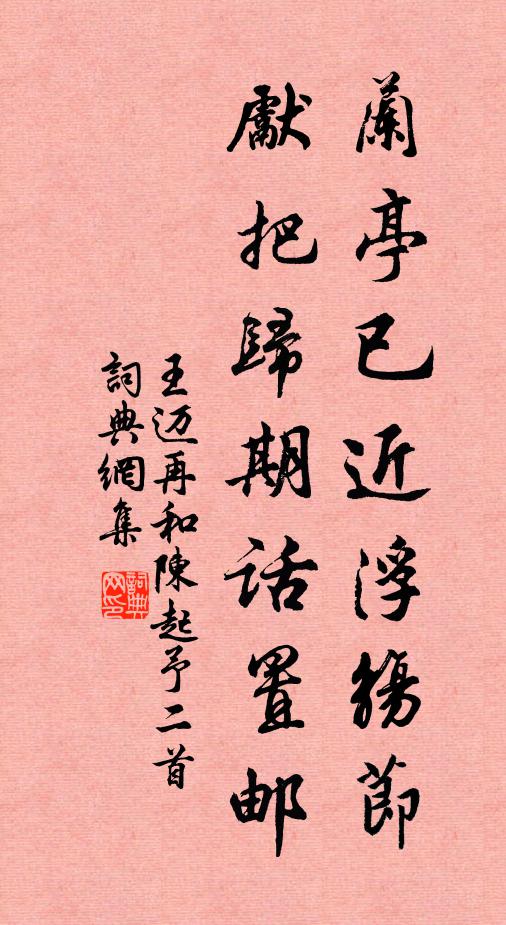 蘭亭已近浮觴節
獻把歸期話置邮
王迈再和陳起予二首
詞典網集
詞典网印